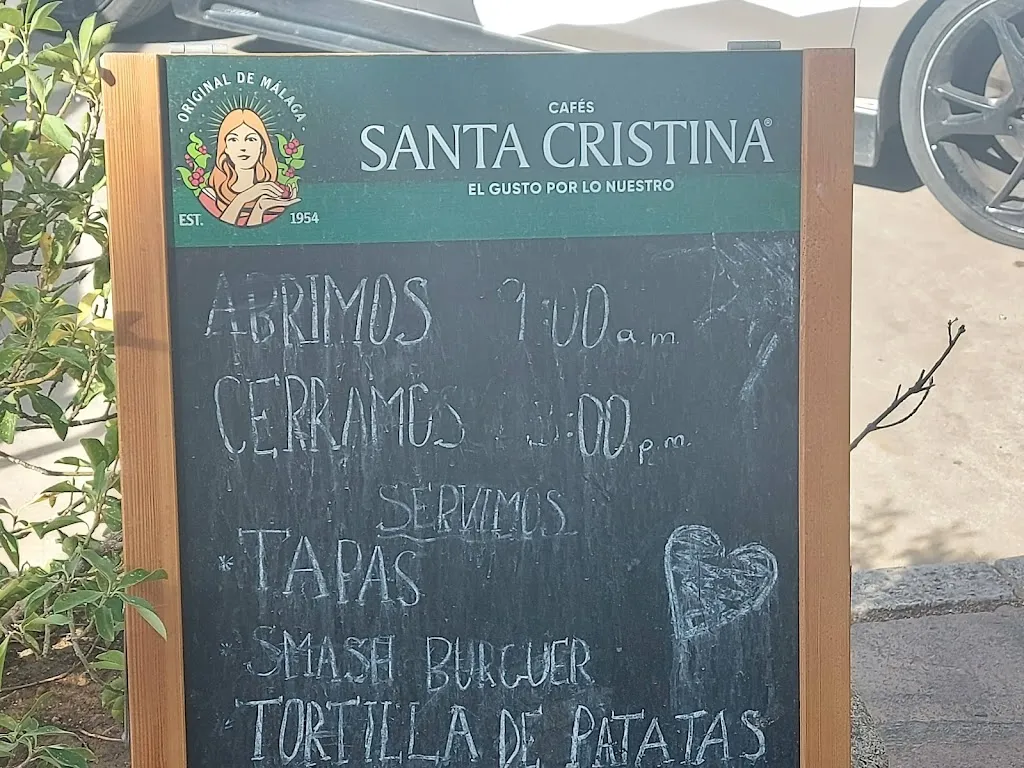 ORIGINAL DE MÁLAGA
EST. 1954
CAFÉS
SANTA CRISTINA®
EL GUSTO POR LO NUESTRO
ABRIMOS 9:00 a.m.
CERRAMOS :00 p.m.
SERVIMOS
* TAPAS
* SMASH BURGUER
* TORTILLA DE PATATAS